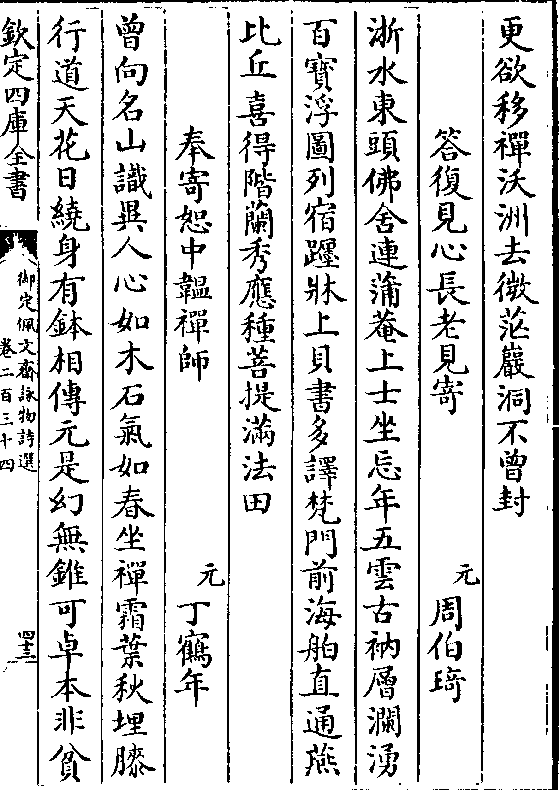 更欲移禪沃洲去微茫巖洞不曾封
答復見心長老見寄 元 周伯琦
浙水東頭佛舍連蒲菴上士坐忘年五雲古衲層瀾湧
百寶浮圖列宿躔牀上貝書多譯梵門前海舶直通燕
比丘喜得階蘭秀應種菩提滿法田
奉寄恕中韞禪師 元 丁鶴年
曾向名山識異人心如木石氣如春坐禪霜葉秋埋膝
行道天花日繞身有鉢相傳元是幻無錐可卓本非貧
欽定四庫全書
御定佩文齋詠物詩選
卷二百三十四
四十三